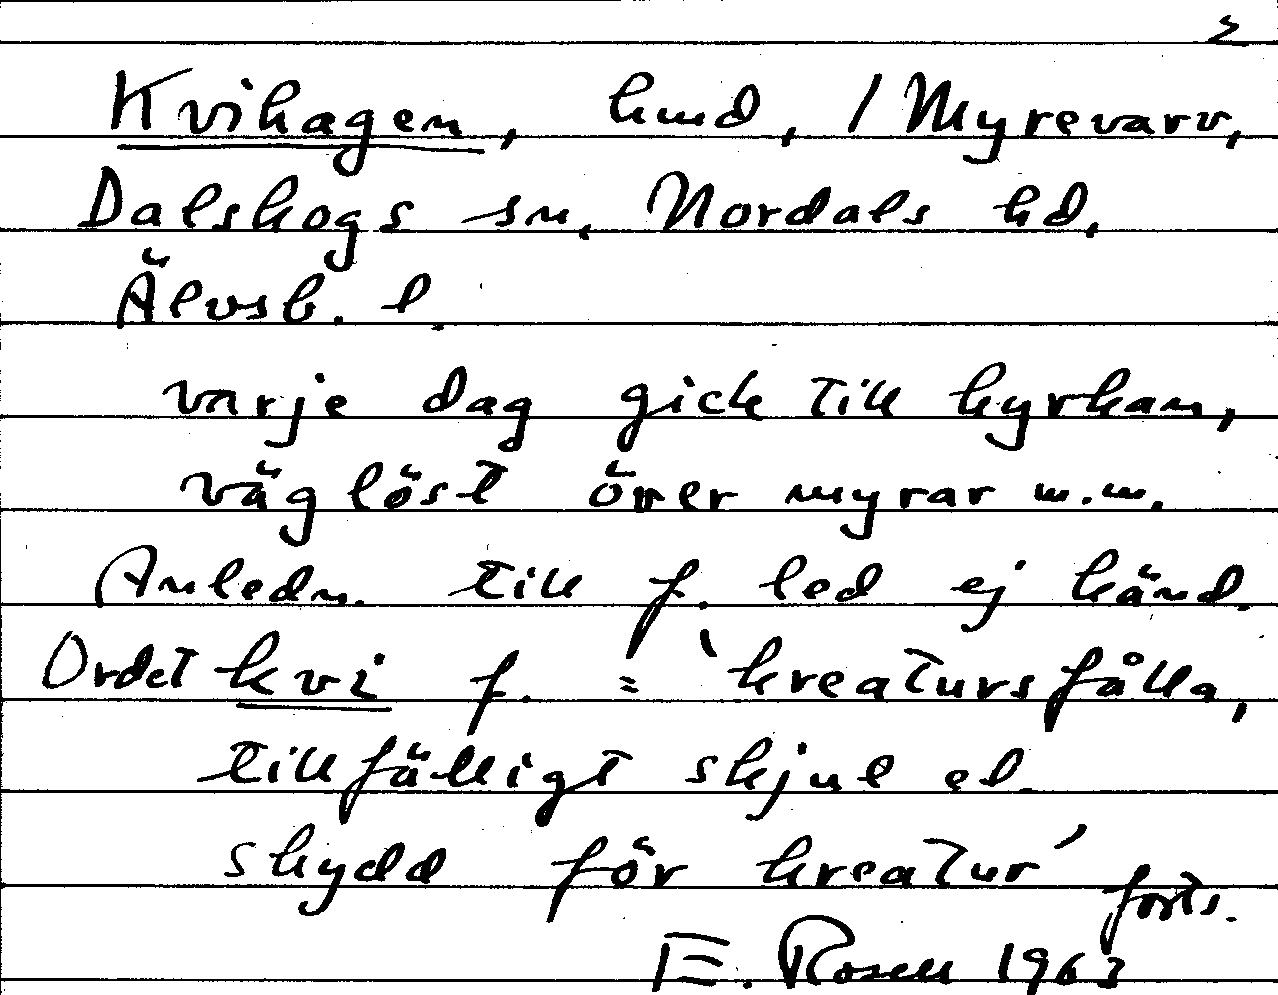 2
Kvihagen, hmd, / Myrevarv,
Dalskogs sn, Nordals hd,
Älvsb. l.
varje dag gick till kyrkan,
väglöst över myrar m.m.
Anledn. till f. led ej känd.
Ordet kvi f. = 'kreatursfålla,
tillfälligt skjul el.
skydd för kreatur' forts.
E. Rosell 1963